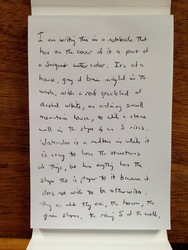 I am writing this in a notebook that
has on the cover of it a part of
a Sargent water color. It's of a
house, gray & brown
with a roof speckled
dashed white, an ordinary small
mountain house, to add a stone
wall in the shape of an S
Watercolor is a medium in which it
is easy to lose the structures
of things, but here everything has the
shape that is proper to it because it
does not wish to be otherwise.
They are all they are, the brown, the
green slopes, the rising S of the wall,